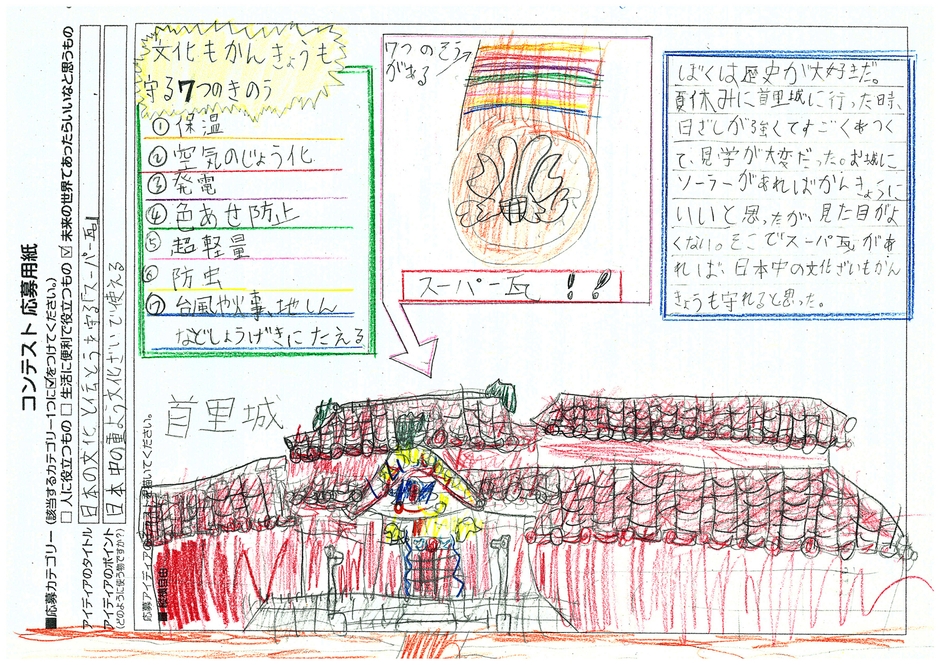 コンテスト 応募用紙
■応募カテゴリー (該当するカテゴリー1つに☑をつけてください。)
□ 人に役立つもの □ 生活に便利で役立つもの ☑ 未来の世界であったらいいなと思うもの
アイディアのタイトル 日本の文化と伝とうを守る「スーパー瓦」
アイディアのポイント
(どのように使う物ですか?)
日本中の重よう文化ざいで使える
応募アイディアの
を描いてください。
文化もかんきょうも
守る7つのきのう
① 保温
② 空気のじょう化
③ 発電
④ 色あせ防止
⑤ 超軽量
⑥ 防虫
⑦ 台風や火事、地しん
などしょうげきにたえる
7つのそう
がある
スーパー瓦!!
ぼくは歴史が大好きだ。
夏休みに首里城に行った時、
日ざしが強くてすごくあつく
て、見学が大変だった。お城に
ソーラーがあればかんきょうに
いいと思ったが、見た目がよ
くない。そこでスーパ瓦があ
れば、日本中の文化ざいもかん
きょうも守れると思った。
首里城